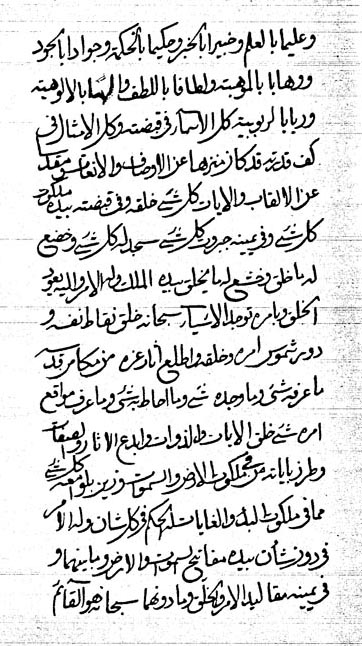 وعليما بالعلم وخبيرا بالخبر وحكيما بالحكمة وجوادا بالجود
ووهابا بالموهبة ولطافا باللطف والها بالالوهية
وربا بالربوبية كل الاسماء في قبضته وكل الامثال في
كف قدرته قد كان منزها عن الاوصاف والانعات ومقدسا
عن الالقاب والايات كل شئ خلقه وفي قبضته بيده ملكوت
كل شئ وفي يمينه جبروت كل شئ سجد له كل شئ وخضع
له ما خلق وخشع له ما يخلق بيده الملك وله الامر واليه يعود
الخلق وبامره توجد الاشياء سبحانه خلق نقاط نفسه و
دور شموس امره وخلقه واطلع انار عزه من مكامن قدسه
ما عرفه شئ وما وحده شئ وما احاط به شئ وما عرف مواقع
امره شئ خلق الايات والذوات وابدع الاثار والصفات
وطرز باياته من في ملكوت الارض والسموات وزين كل شئ
مما في ملكوت البدء والغايات له الحكم في كل شان وله الامر
في دون شأن بيده مفاتيح السموات والارض وما بينهما و
في يمينه مقاليد الامر والخلق وما دونهما سبحانه هو القائم